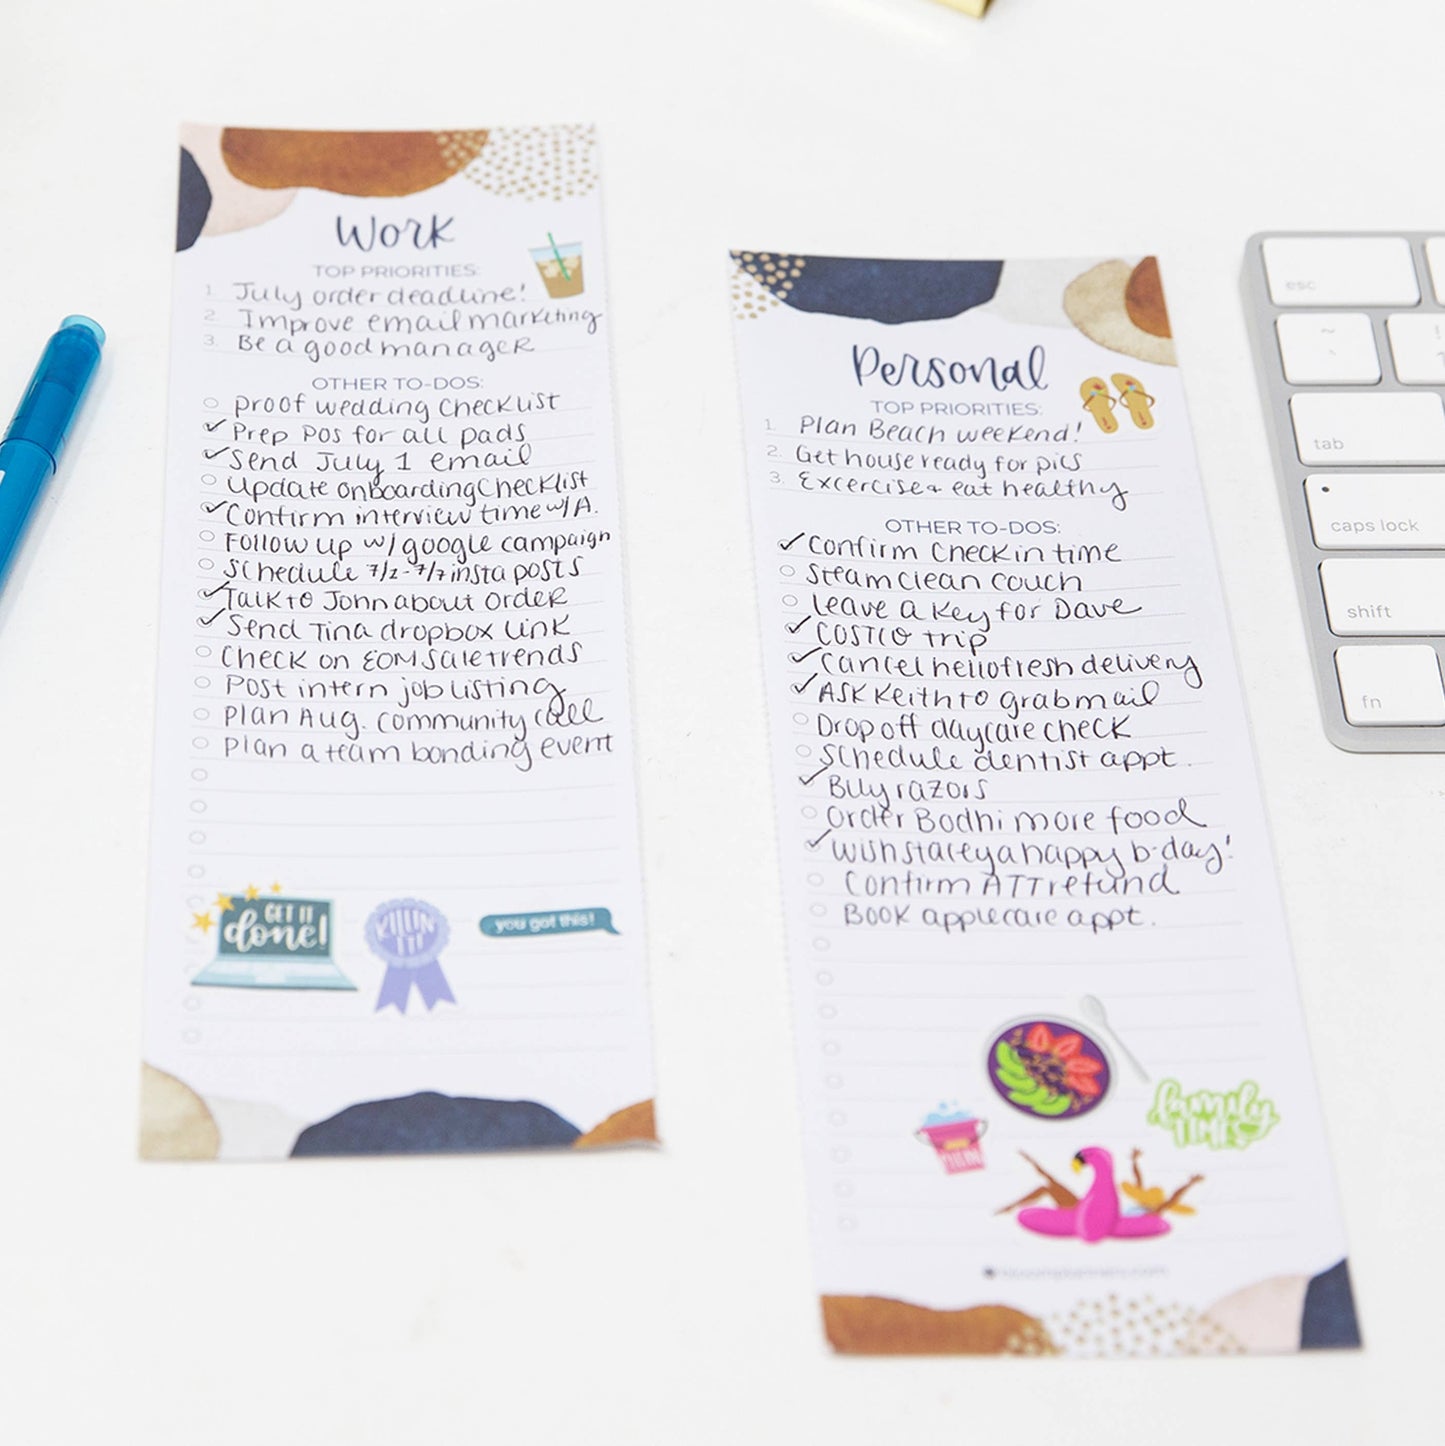 Work
TOP PRIORITIES:
1. July order deadline!
2. Improve email marketing
3. Be a good manager
OTHER TO-DOS:
proof wedding checklist
Prep POs for all pads
Send July 1 email
update onboarding checklist
Confirm interview time w/ A.
Follow up w/ google campaign
schedule 7/2-7/7 insta posts
Talk to John about order
Send Tina dropbox link
Check on EOM sale trends
Post intern job listing
Plan Aug. community call
plan a team bonding event
GET IT
done!
KILLIN
IT!
you got this!
Personal
TOP PRIORITIES:
1. Plan Beach weekend!
2. Get house ready for pics
3. Excercise + eat healthy
OTHER TO-DOS:
Confirm check in time
Steam clean couch
leave a key for Dave
COSTCO trip
Cancel hellofresh delivery
ASK Keith to grab mail
Drop off daycare check
Schedule dentist appt.
Buy razors
Order Bodhi more food
Wish stacey a happy b-day!
Confirm ATT refund
Book applecare appt.
family
TIMES
bloomplanners.com
esc
~
`
!
1
tab
caps lock
shift
fn